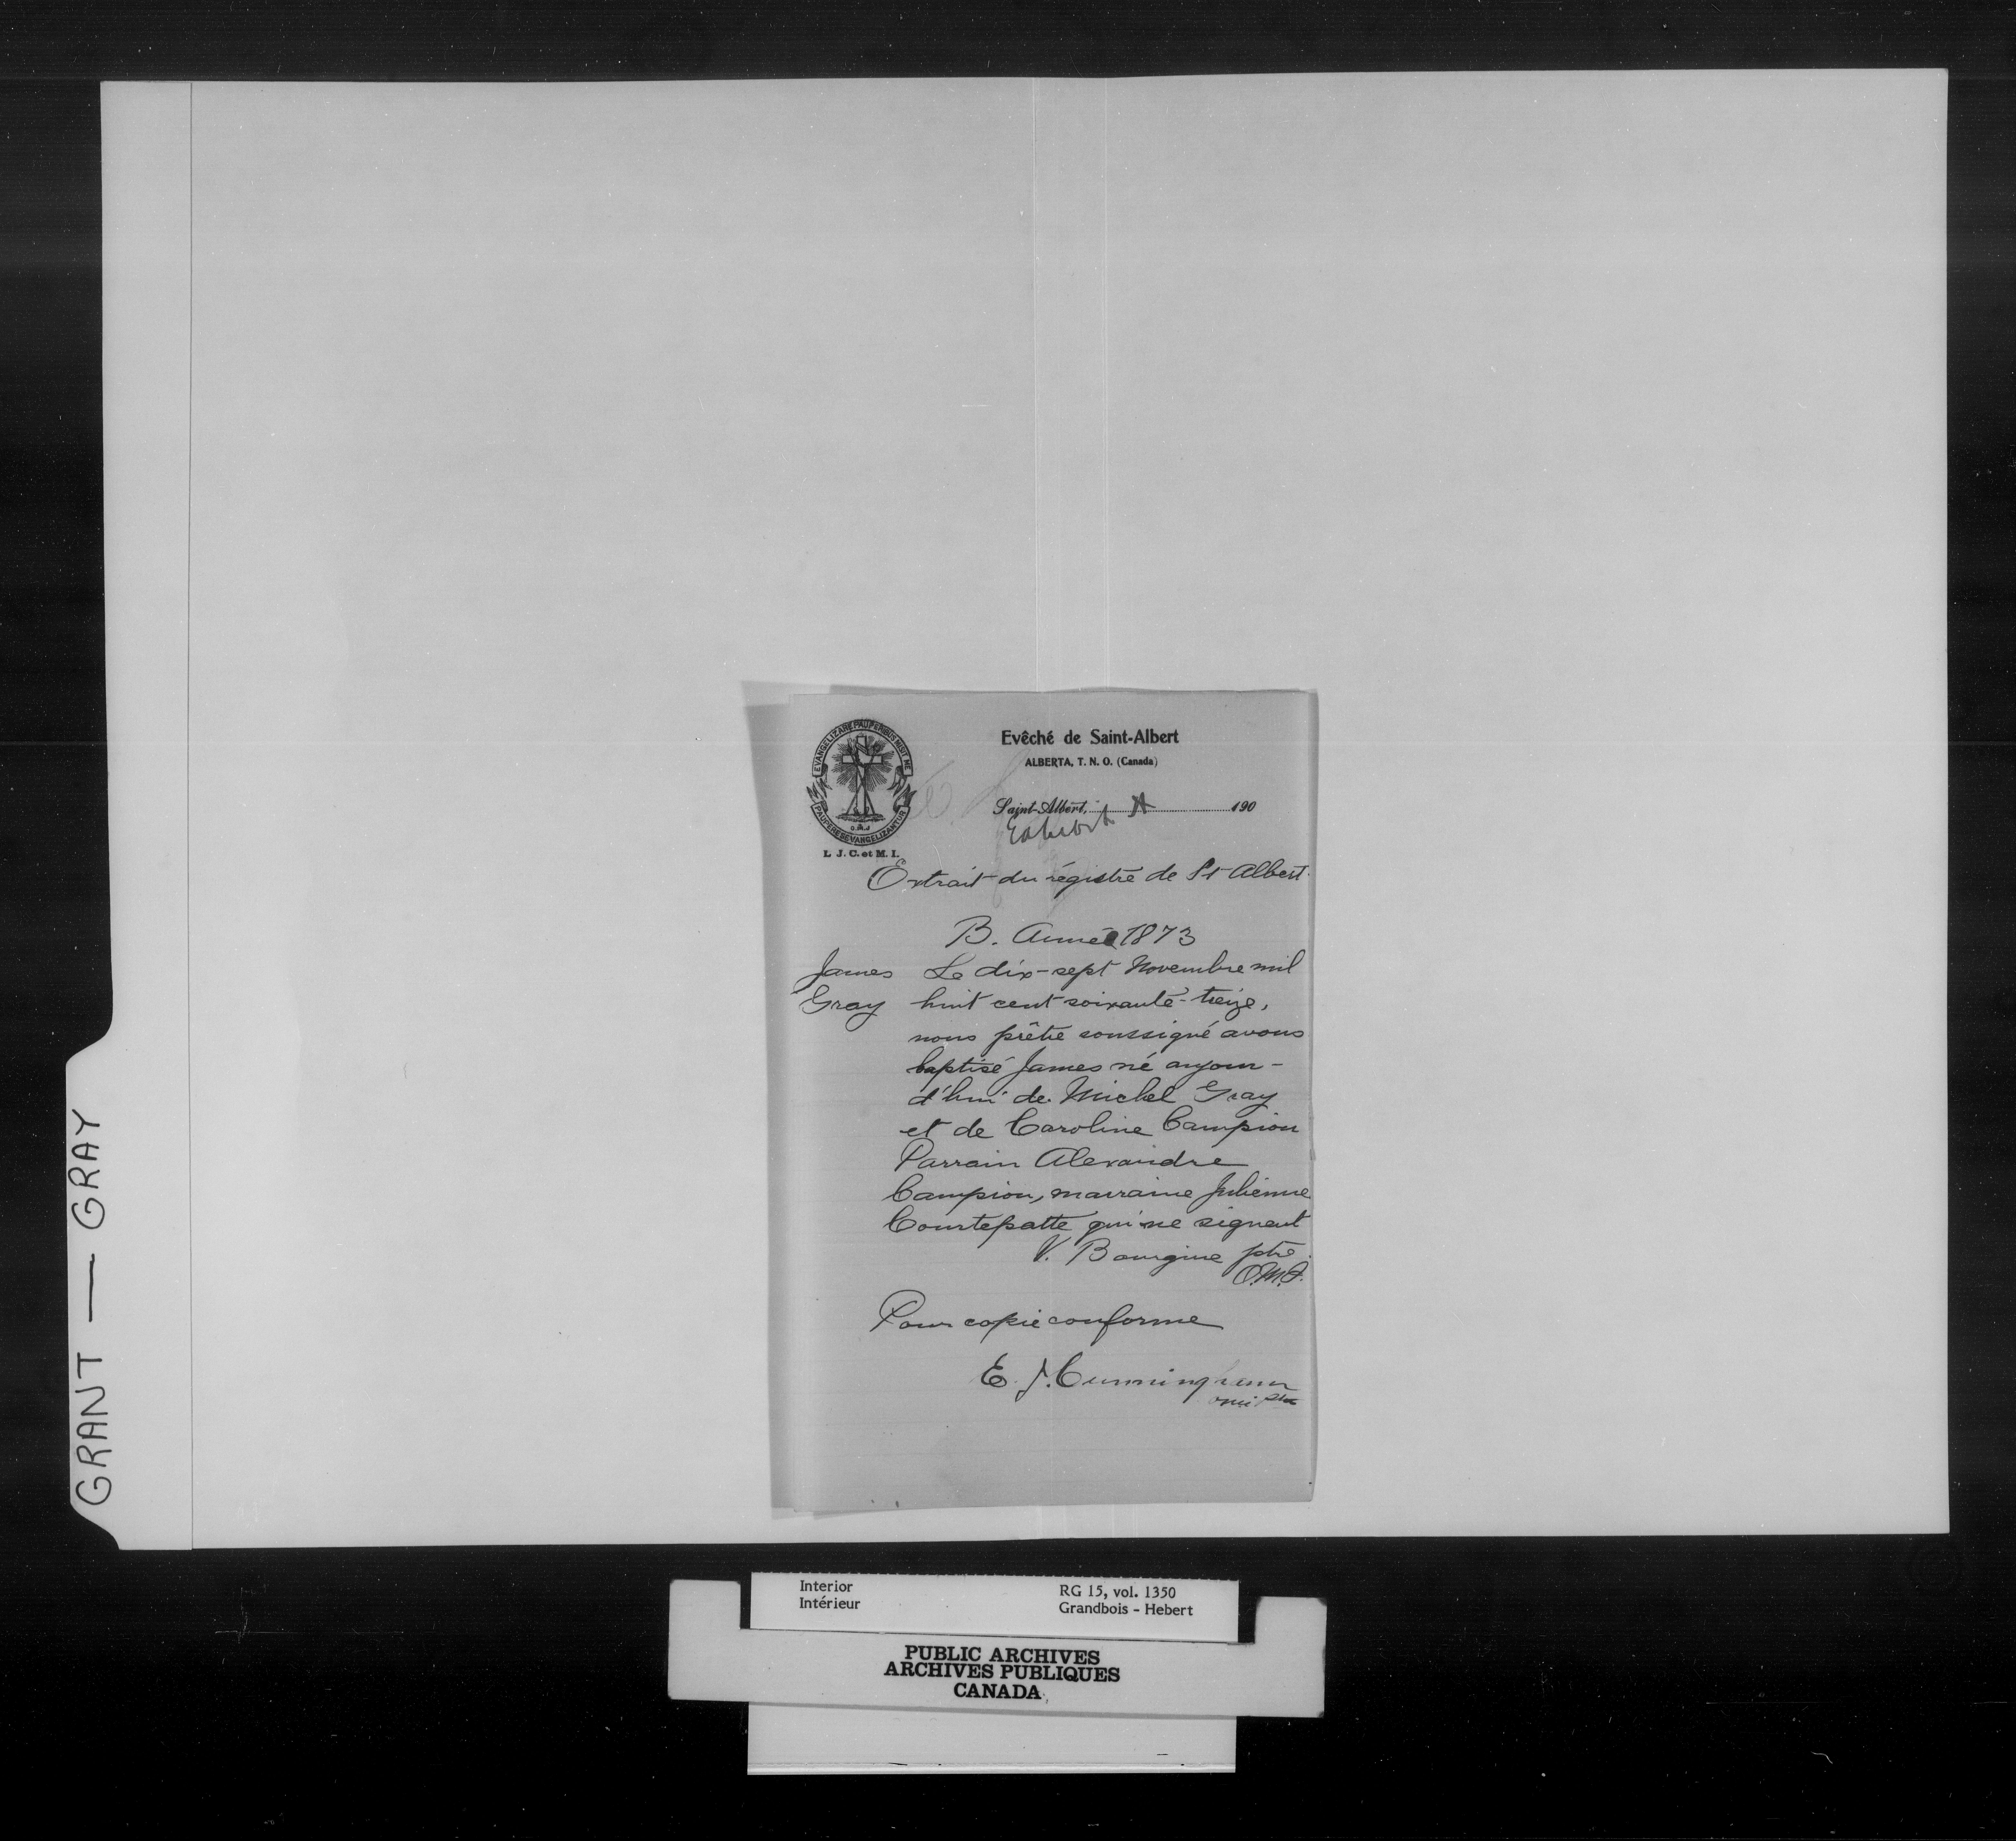 EVANGELIZARE PAUPERIBUS MISIT ME
PAUPERES EVANGELIZANTUR
O.M.I
L. J. C. et M. I.
Evêché de Saint-Albert
ALBERTA, T. N. O. (Canada)
Saint-Albert, 190
Exhibit A
Extrait du régistre de St Albert.
B. Année 1873
James Le dix-sept Novembre mil
Gray huit cent soixante-treize,
nous prêtre soussigné avons
baptisé James né aujour-
d'hui de Michel Gray
et de Caroline Campion
Parrain Alexandre
Campion, marraine Julienne
Courtepatte qui ne signent
V. Bourgine ptre.
O.M.I.
Pour copie conforme
E. J. Cunningham
omi ptre
GRANT — GRAY
Interior RG 15, vol. 1350
Intérieur Grandbois - Hebert
PUBLIC ARCHIVES
ARCHIVES PUBLIQUES
CANADA